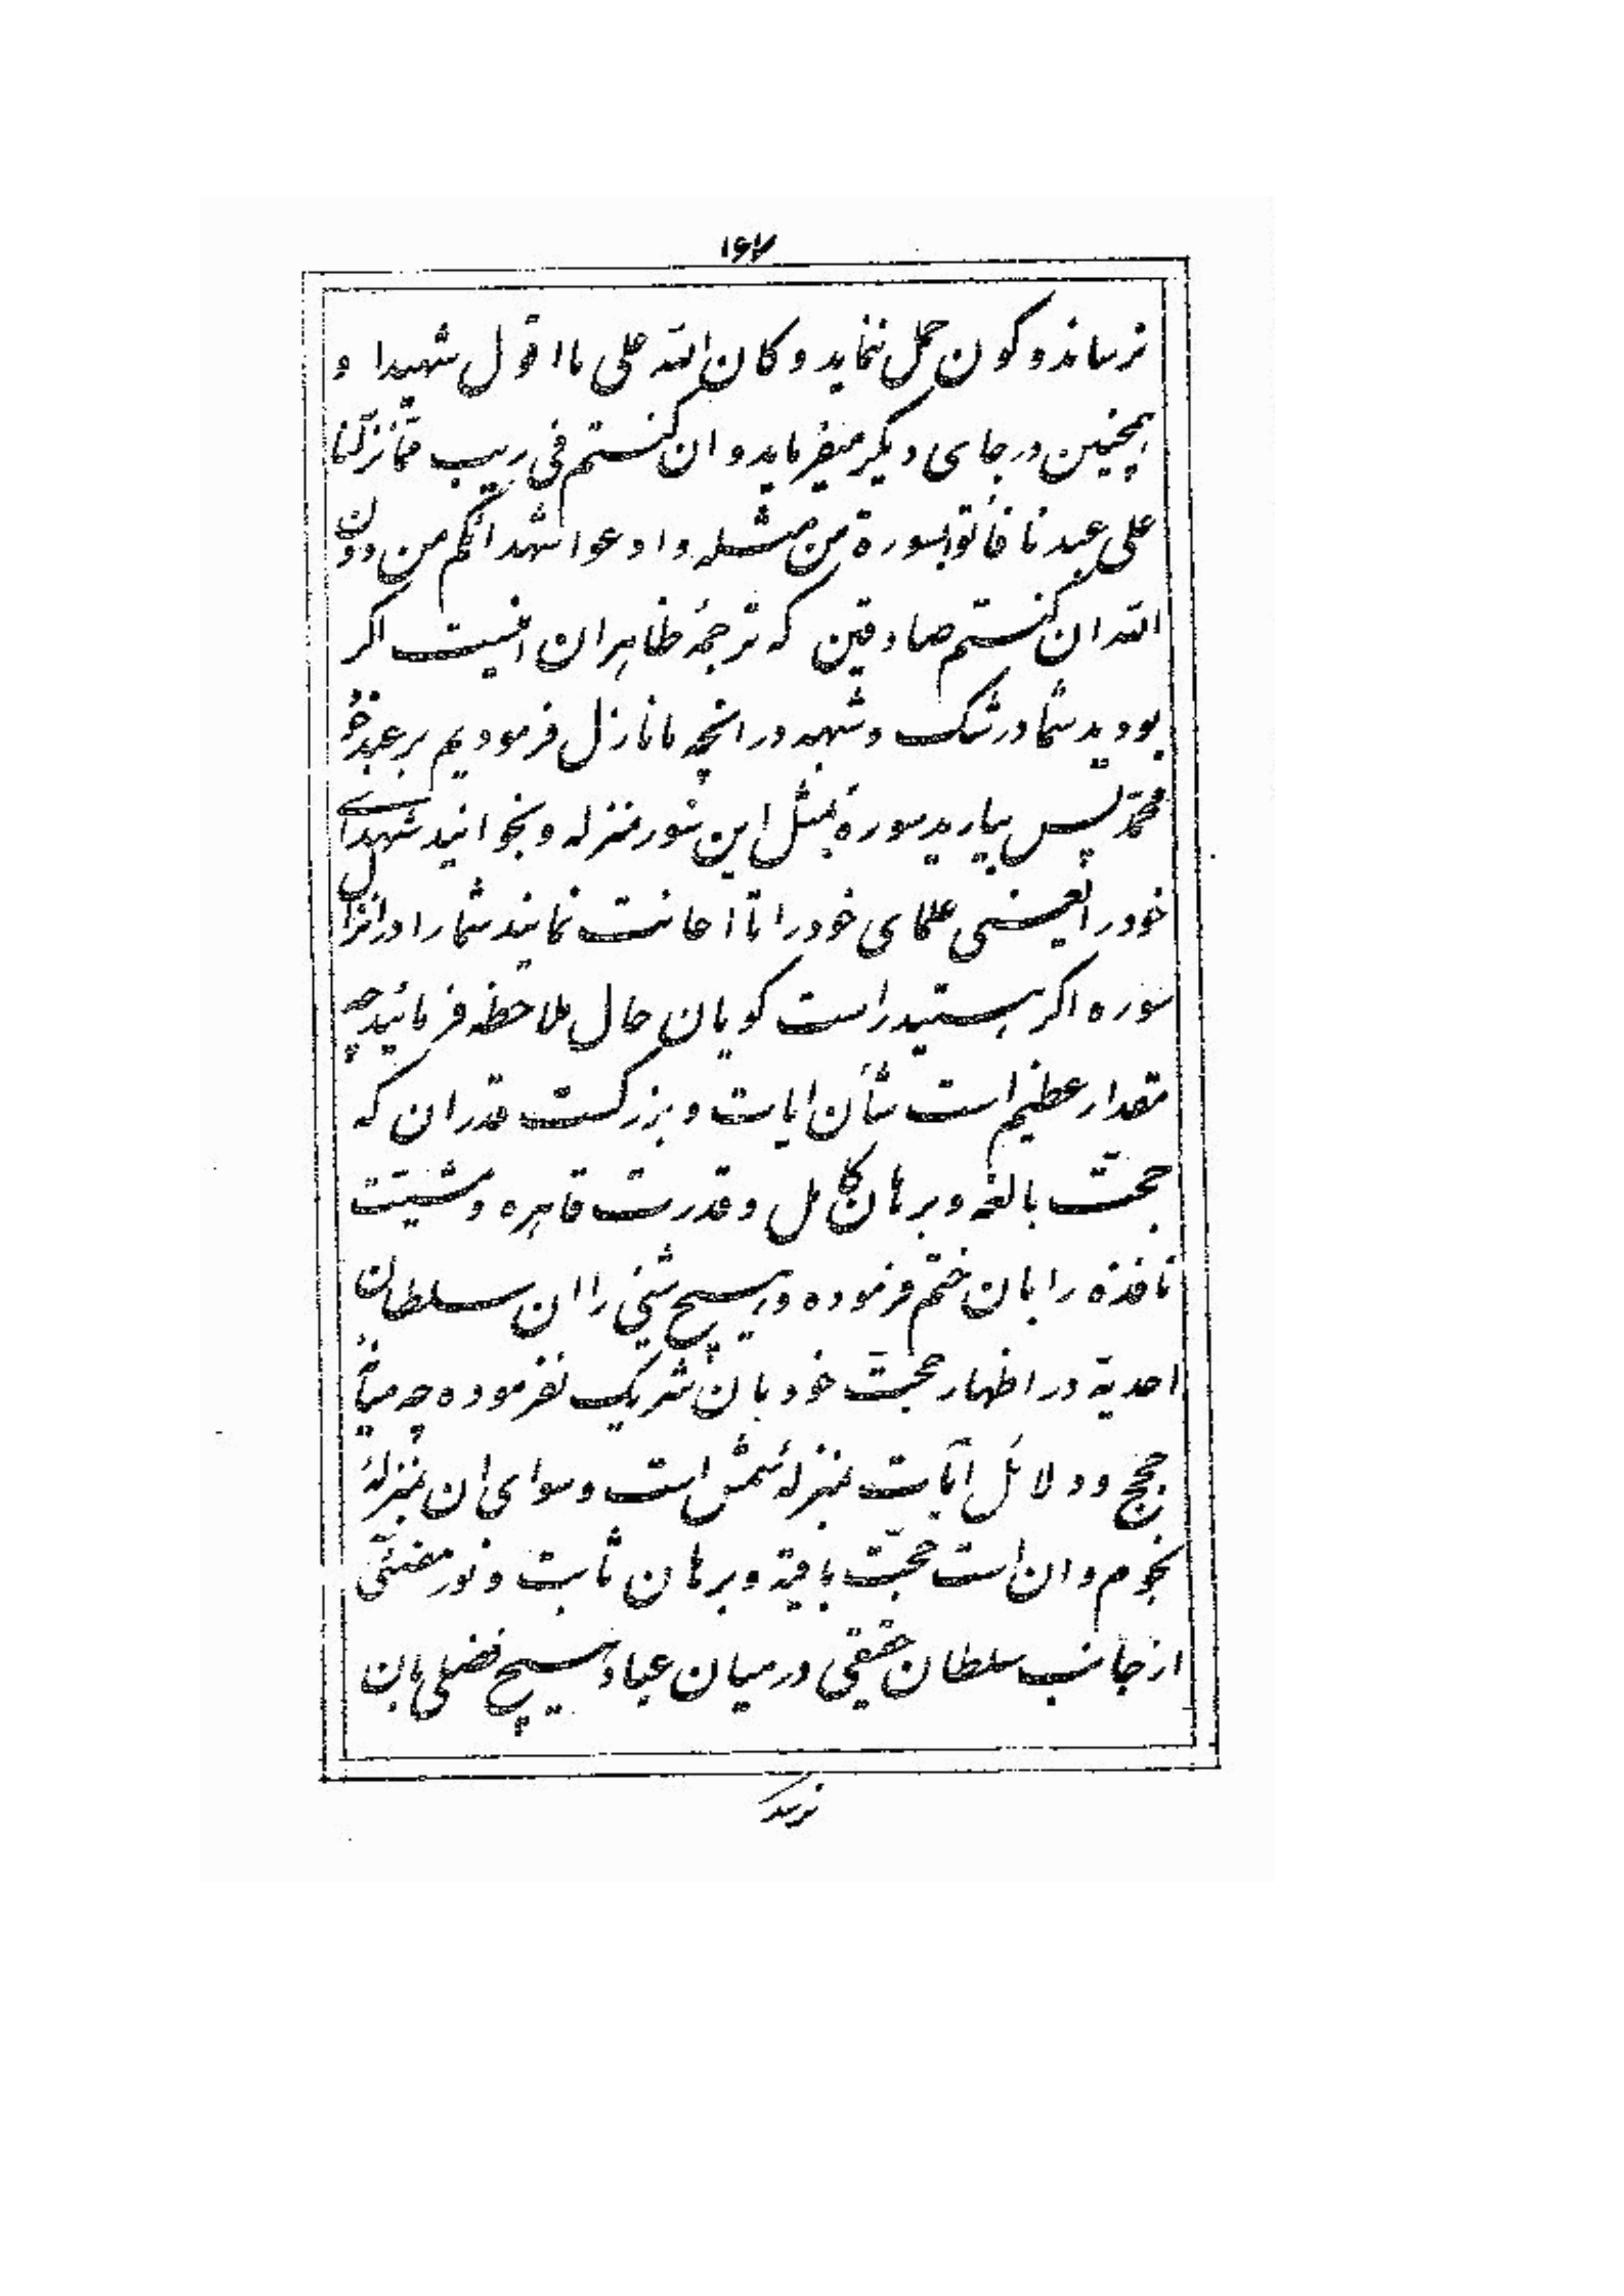 ۱۶۷
نرساند و کون حمل ننماید و کان الله علی ما اقول شهیدا و
همچنین در جای دیگر میفرماید و ان کنتم فی ریب ممّا نزّلنا
علی عبدنا فأتوا بسورة من مثله و ادعوا شهدائکم من دون
الله ان کنتم صادقین که ترجمهٔ ظاهر ان اینست اکر
بودید شما در شک و شبهه در انچه ما نازل فرمودیم بر عبد خود
محمّد پس بیارید سورهٔ بمثل این سور منزله و بخوانید شهدای
خود را یعنی علمای خود را تا اعانت نمایند شما را در انزال
سوره اکر هستید راست کویان حال ملاحظه فرمائید چه
مقدار عظیم است شأن ایات و بزرکست قدر ان که
حجّت بالغه و برهان کامل و قدرت قاهره و مشیّت
نافذه را بان ختم فرموده و هیچ شیئی را ان سلطان
احدیّه در اظهار حجّت خود بان شریک نفرموده چه میانهٔ
حجج و دلائل آیات بمنزله شمش است و سوای ان بمنزلهٔ
نجوم و ان است حجّت باقیه و برهان ثابت و نور مضیئی
از جانب سلطان حقیقی در میان عباد هیچ فضلی بان
نرسد